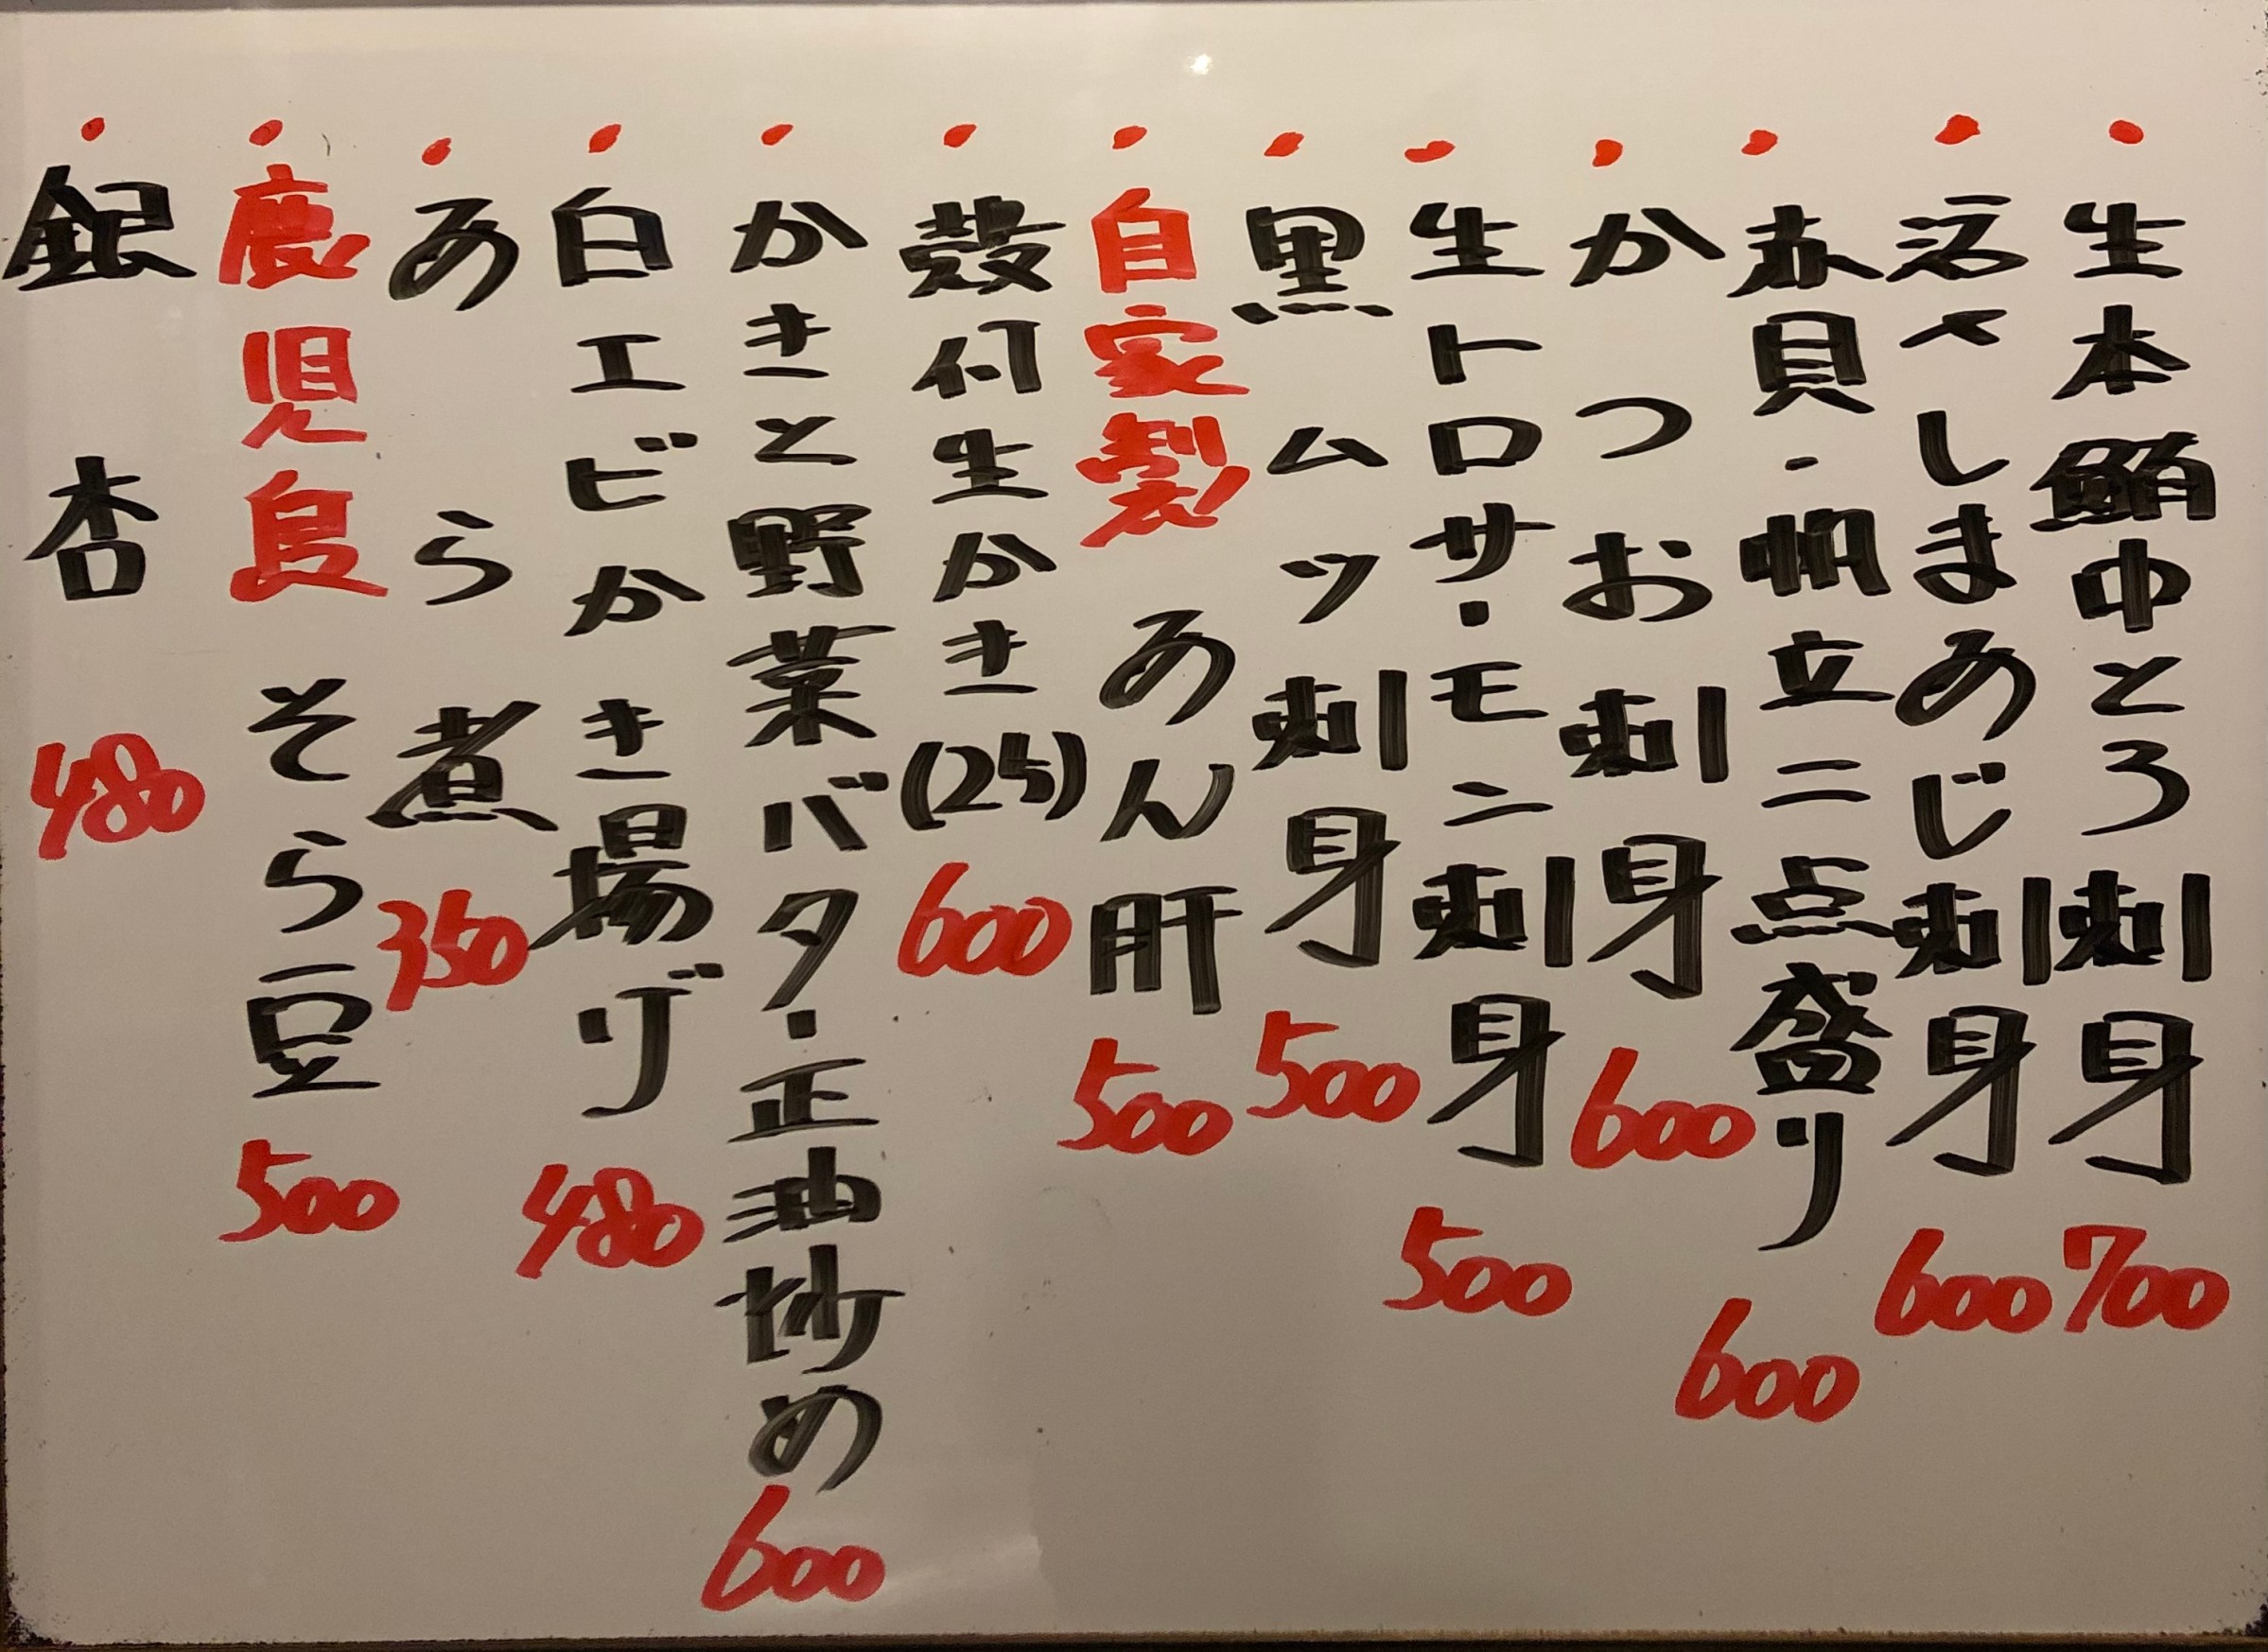 ・生本鮪中とろ刺身 700
・活〆しまあじ刺身 600
・赤貝・帆立二点盛り 600
・かつお刺身 600
・生トロサーモン刺身 500
・黒ムツ刺身 500
・自家製 あん肝 500
・殻付生かき 600
・かきと野菜バター正油炒め 600
・白エビかき揚げ 480
・あら煮 350
・鹿児島 そら豆 500
・銀杏 480